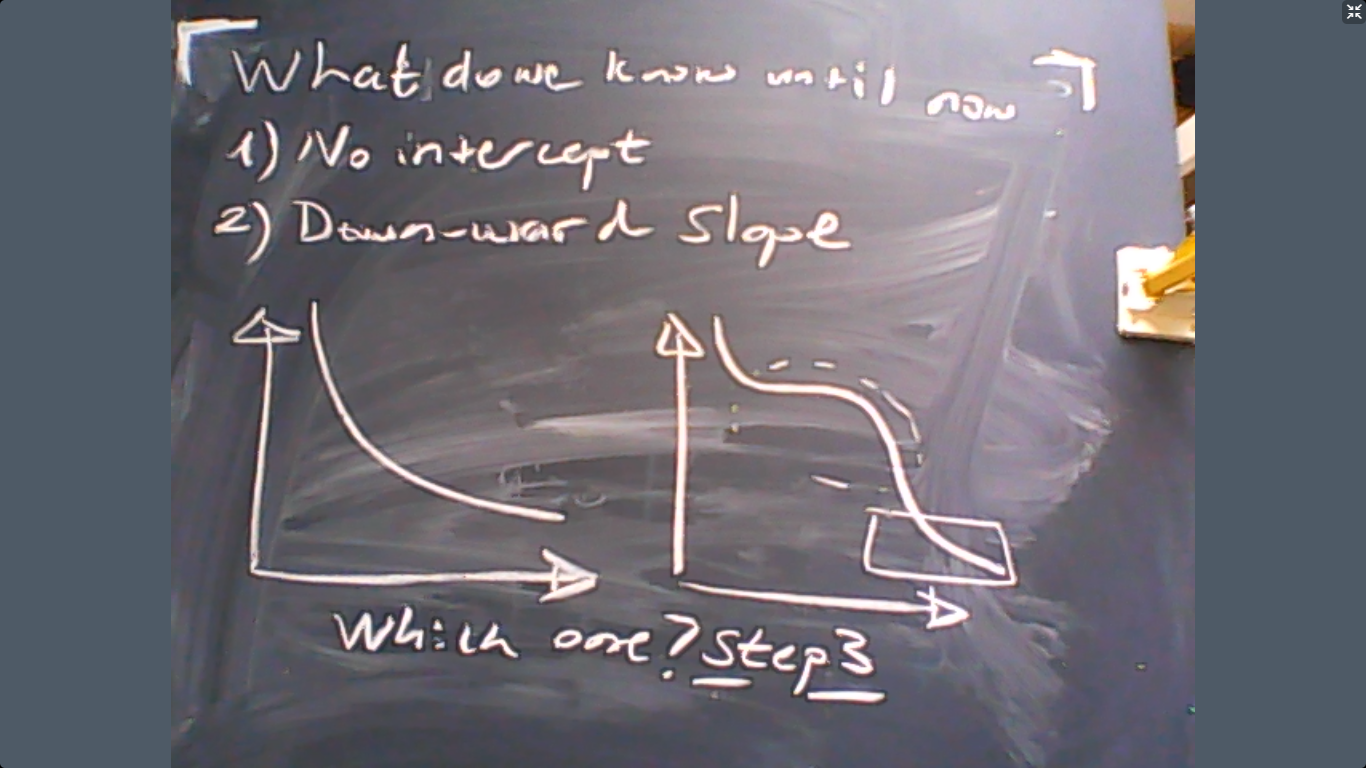 What do we know until now
1) No intercept
2) Down-ward Slope
Which one? Step 3